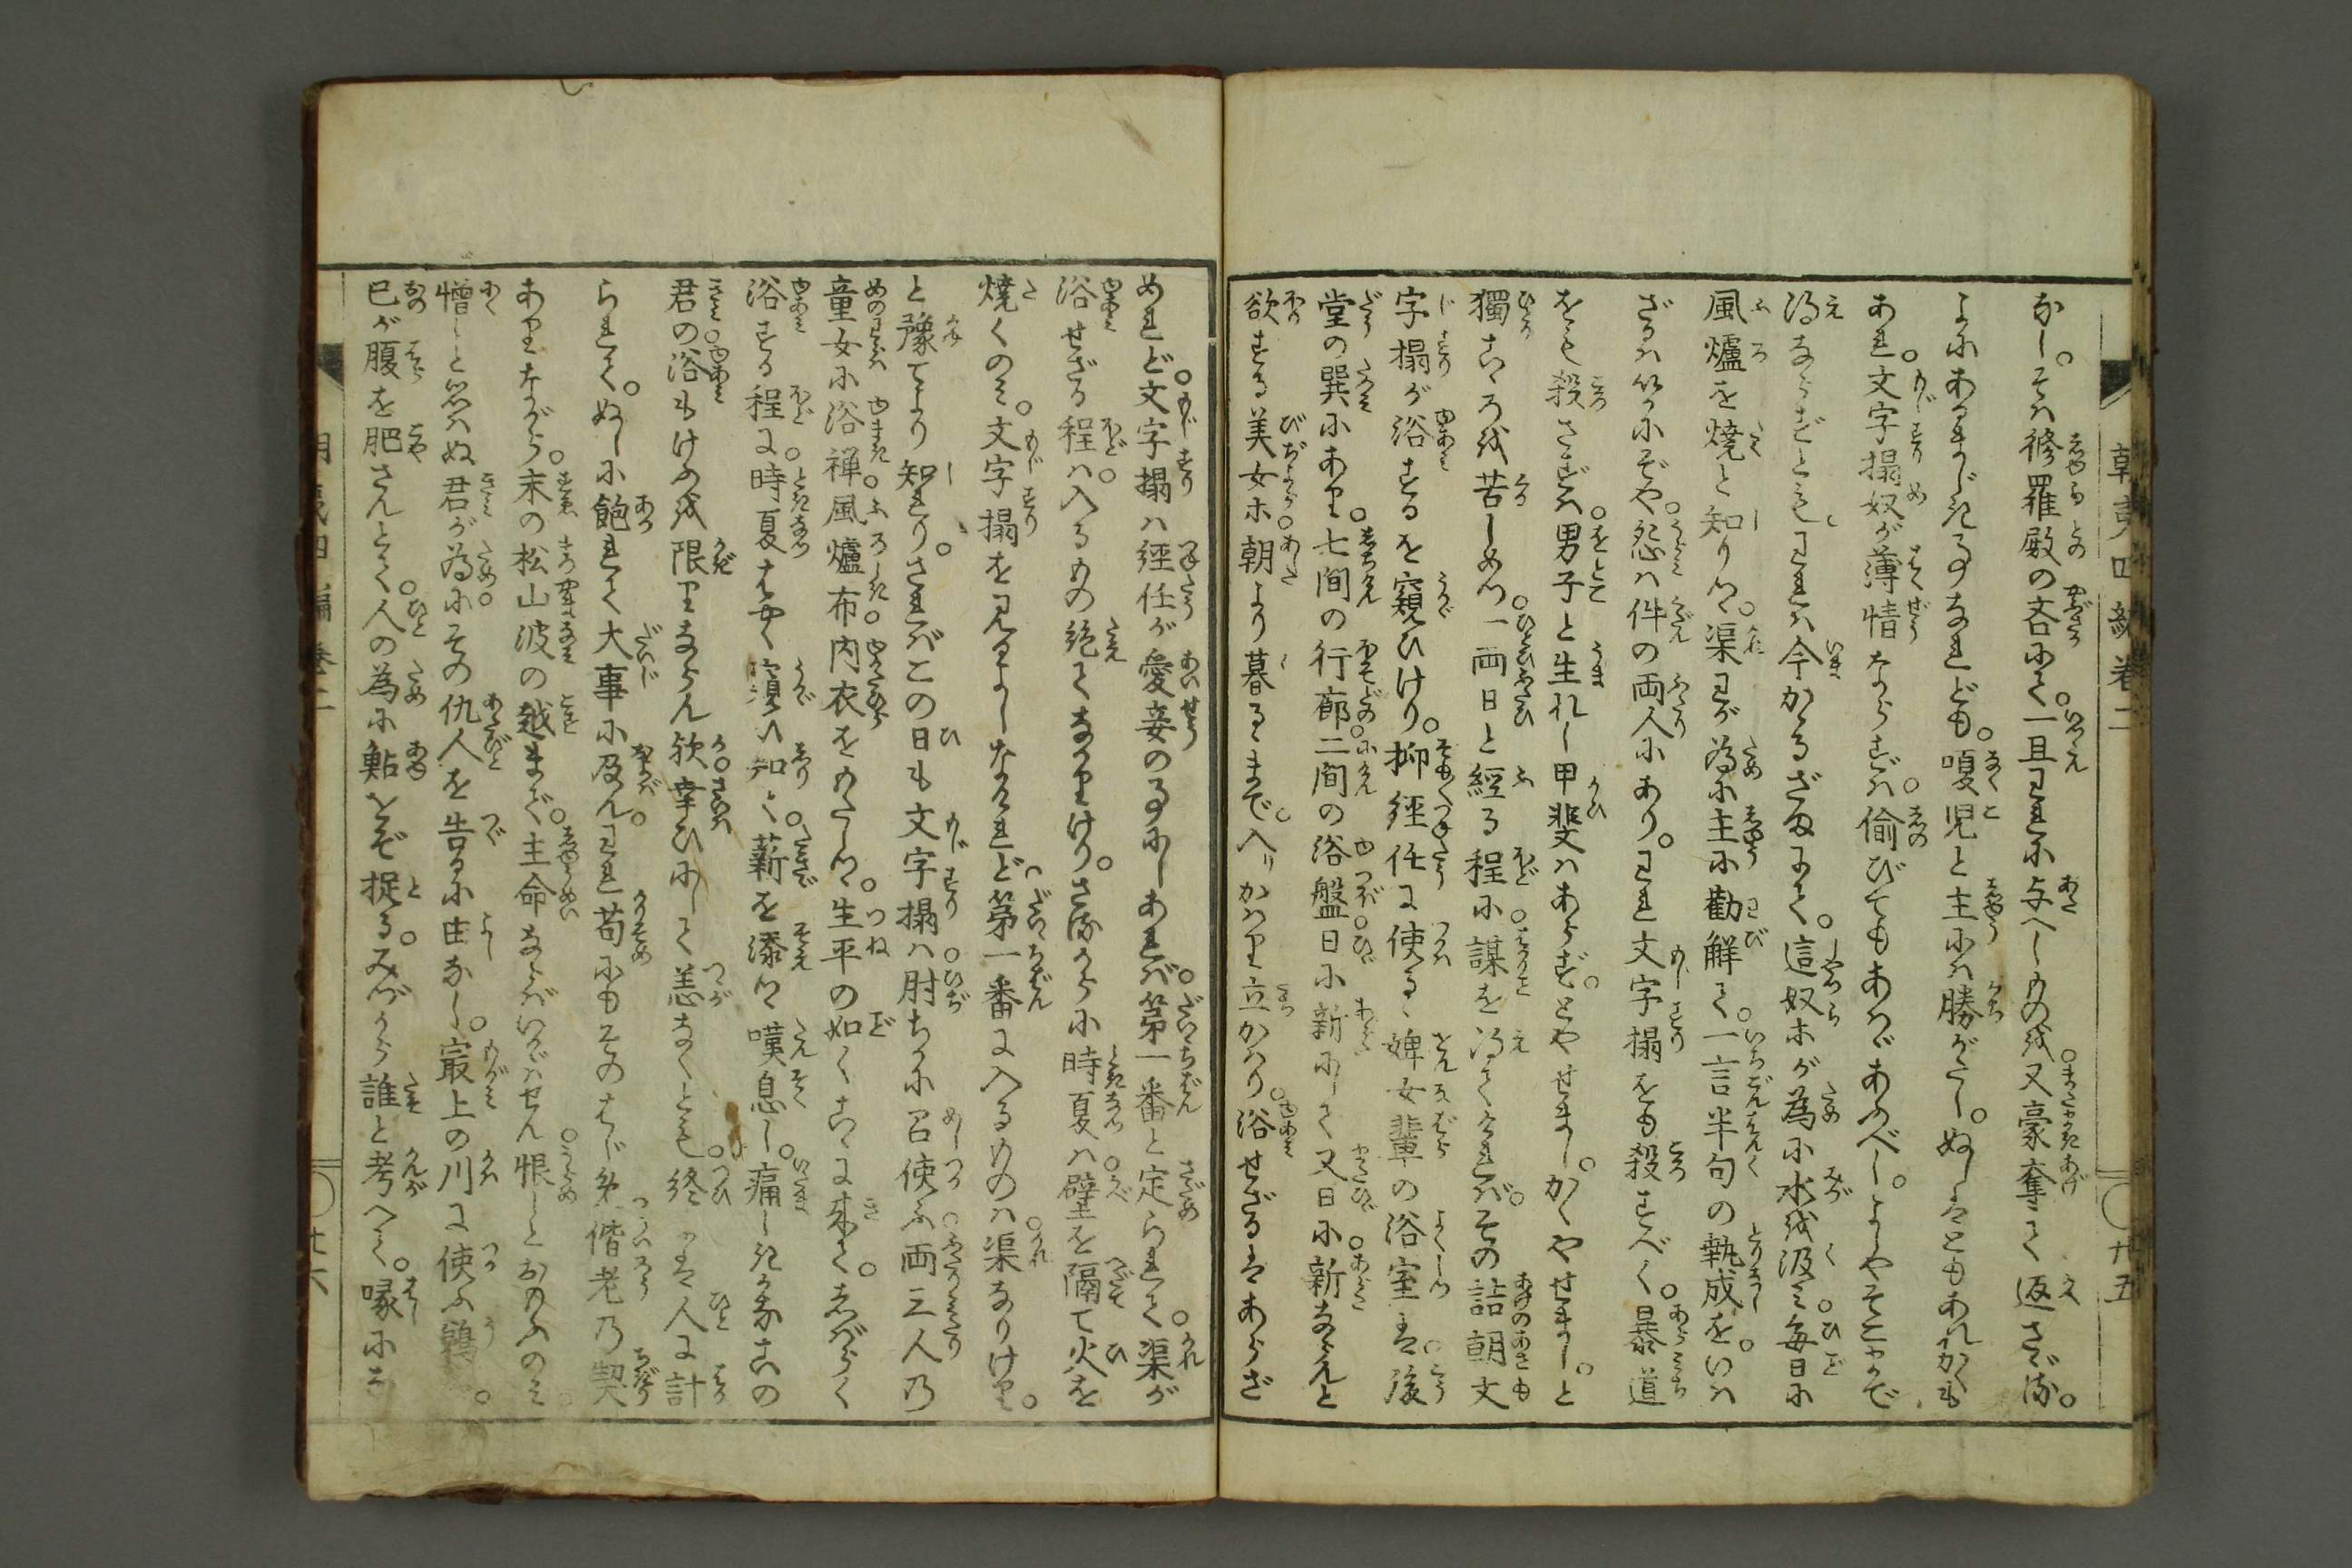 朝夷四編巻二
なし。そは修羅殿の吝にて。一旦われに与へしものを又豪奪て返さず。
よにあるまじき事なれども。嗄児と主には勝がたし。ぬしはともあれかくも
あれ。文字摺奴が薄情ならずは。偸びてもあはゞあふべし。よしやそこまで
得ならずとも。われは今かるざまにて。這奴等が為に水を汲み。毎日に
風爐を焼と知りつゝ。渠わが為に主に勧解て。一言半句の執成を。いは
ざるはいかにぞや。怨は件の両人にあり。われ文字摺をも殺すべく。暴道
をも殺さずは。男子と生れし甲斐はあらず。とやせまし。かくやせまし。と
獨こゝろを苦しめつ。一両日と經る程に謀を得てければ。その詰朝文
字摺が浴するを窺ひけり。抑經任に使るゝ婢女輩の浴室は。後
堂の巽にあり。七間の行廊。二間の浴盤。日に新にして又日に新ならんと
欲する美女等。朝より暮るゝまで。入りかはり立かはり。浴せざるはあらざ
廿五
めれど。文字摺は經任が愛妾の事にしあれば。第一番と定られて。渠が
浴せざる程は。入るもの絶てなかりけり。さるからに時夏は。壁を隔て火を
焼くのみ。文字摺を見るよしなけれど。第一番に入るものは。渠なりけり。
と豫てより知れり。さればこの日も文字摺は。肘ちかに召使ふ。両三人の
童女に浴褌。風爐布。内衣をもたしつゝ。生平の如くこゝに来て。しばらく
浴する程に。時夏はやく窺ひ知て。薪を添つゝ嘆息し。痛しきかなこの
君の。浴もけふを限りならん歟。幸ひにして恙なくとも。終には人に計
られて。ぬしに飽れて大事に及ん。われ苟にもそのはじめ。偕老の契
ありながら。末の松山波の越まで。主命ならばいかゞはせん。恨しとおもふのみ
憎しと思はぬ君が為に。その仇人を告るに由なし。最上の川に使ふ鵜も。
己が腹を肥さんとて。人の為に鮎をぞ捉る。みづから誰と考へて。喙には
廿六